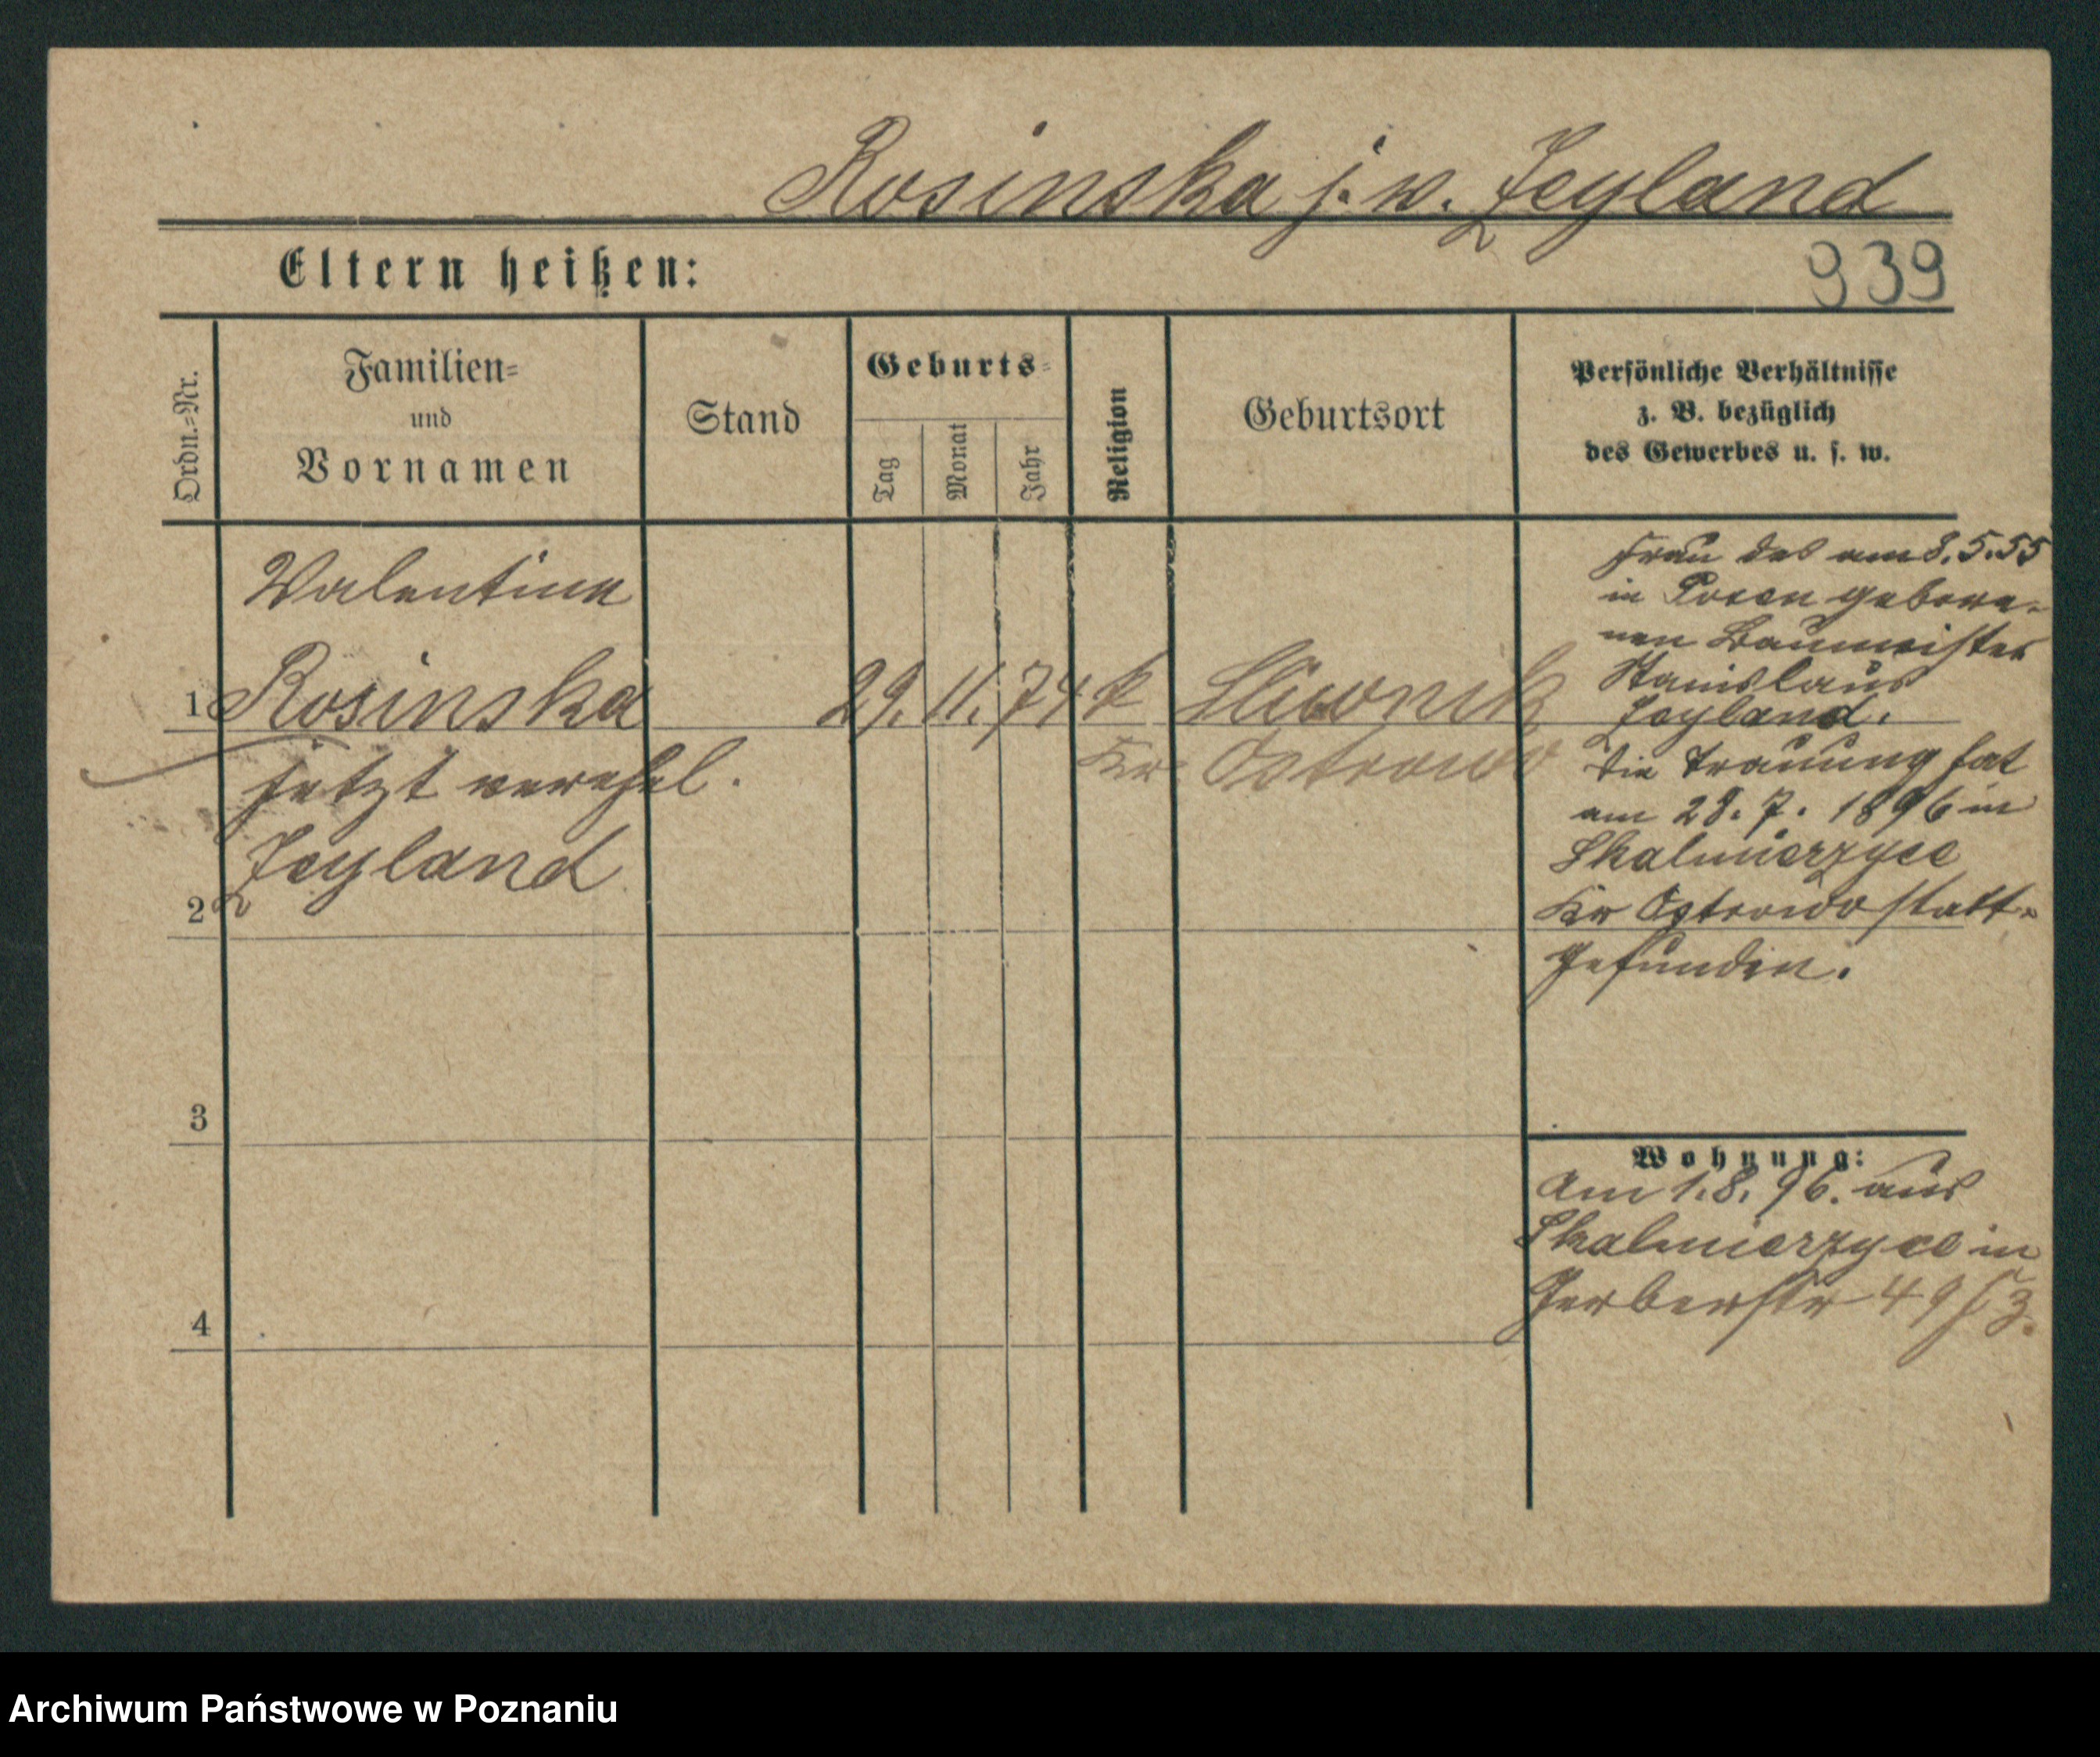 Rosinska j. w. Zeyland
Eltern heißen:
939
Ordn.=Nr.
Familien=
und
Vornamen
Stand
Geburts=
Tag
Monat
Jahr
Religion
Geburtsort
Persönliche Verhältnisse
z. B. bezüglich
des Gewerbes u. s. w.
Valentina
1 Rosinska 29. 11. 74 k Sliwnik
jetzt verehel. Kr. Ostrowo
Zeyland
2
3
4
Frau des am 8.5.55
in Posen gebore-
nen Baumeister
Stanislaus
Zeyland.
Die Trauung hat
am 28. 7. 1896 in
Skalmierzyce
Kr Ostrowo statt-
gefunden.
Wohnung:
Am 1.8.96. aus
Skalmierzyce in
Gerberstr 49
Archiwum Państwowe w Poznaniu